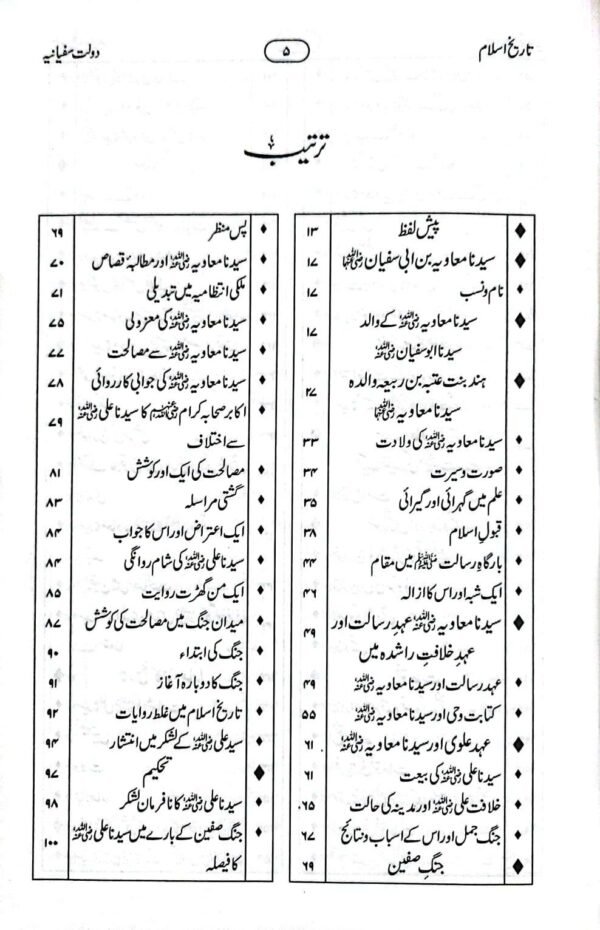 تاریخ اسلام ۵ دولت سفیانیہ
ترتیب
پیش لفظ ۱۳
سیدنا معاویہ بن ابی سفیان رضی اللہ عنہما ۱۷
نام و نسب ۱۷
سیدنا معاویہ رضی اللہ عنہ کے والد ۱۷
سیدنا ابوسفیان رضی اللہ عنہ
ہند بنت عتبہ بن ربیعہ والدہ ۲۷
سیدنا معاویہ رضی اللہ عنہما
سیدنا معاویہ رضی اللہ عنہ کی ولادت ۳۳
صورت و سیرت ۳۴
علم میں گہرائی اور گیرائی ۳۵
قبول اسلام ۳۸
بارگاہِ رسالت صلی اللہ علیہ وسلم میں مقام ۴۴
ایک شبہ اور اس کا ازالہ ۴۶
سیدنا معاویہ رضی اللہ عنہ عہدِ رسالت اور ۴۹
عہدِ خلافتِ راشدہ میں
عہد رسالت اور سیدنا معاویہ رضی اللہ عنہ ۴۹
کتابت وحی اور سیدنا معاویہ رضی اللہ عنہ ۵۵
عہد علوی اور سیدنا معاویہ رضی اللہ عنہ ۶۱
سیدنا علی رضی اللہ عنہ کی بیعت ۶۱
خلافت علی رضی اللہ عنہ اور مدینہ کی حالت ۶۵
جنگ جمل اور اس کے اسباب و نتائج ۶۷
جنگِ صفین ۶۹
پس منظر ۶۹
سیدنا معاویہ رضی اللہ عنہ اور مطالبۂ قصاص ۷۰
ملکی انتظامیہ میں تبدیلی ۷۱
سیدنا معاویہ رضی اللہ عنہ کی معزولی ۷۵
سیدنا معاویہ رضی اللہ عنہ سے مصالحت ۷۷
سیدنا معاویہ رضی اللہ عنہ کی جوابی کارروائی ۷۸
اکابر صحابہ کرام رضی اللہ عنہم کا سیدنا علی رضی اللہ عنہ ۷۹
سے اختلاف
مصالحت کی ایک اور کوشش ۸۱
گشتی مراسلہ ۸۳
ایک اعتراض اور اس کا جواب ۸۴
سیدنا علی رضی اللہ عنہ کی شام روانگی ۸۴
ایک من گھڑت روایت ۸۵
میدان جنگ میں مصالحت کی کوشش ۸۷
جنگ کی ابتداء ۹۰
جنگ کا دوبارہ آغاز ۹۱
تاریخ اسلام میں غلط روایات ۹۲
سید علی رضی اللہ عنہ کے لشکر میں انتشار ۹۴
تحکیم ۹۷
سیدنا علی رضی اللہ عنہ کا نافرمان لشکر ۹۸
جنگ صفین کے بارے میں سیدنا علی رضی اللہ عنہ ۱۰۰
کا فیصلہ